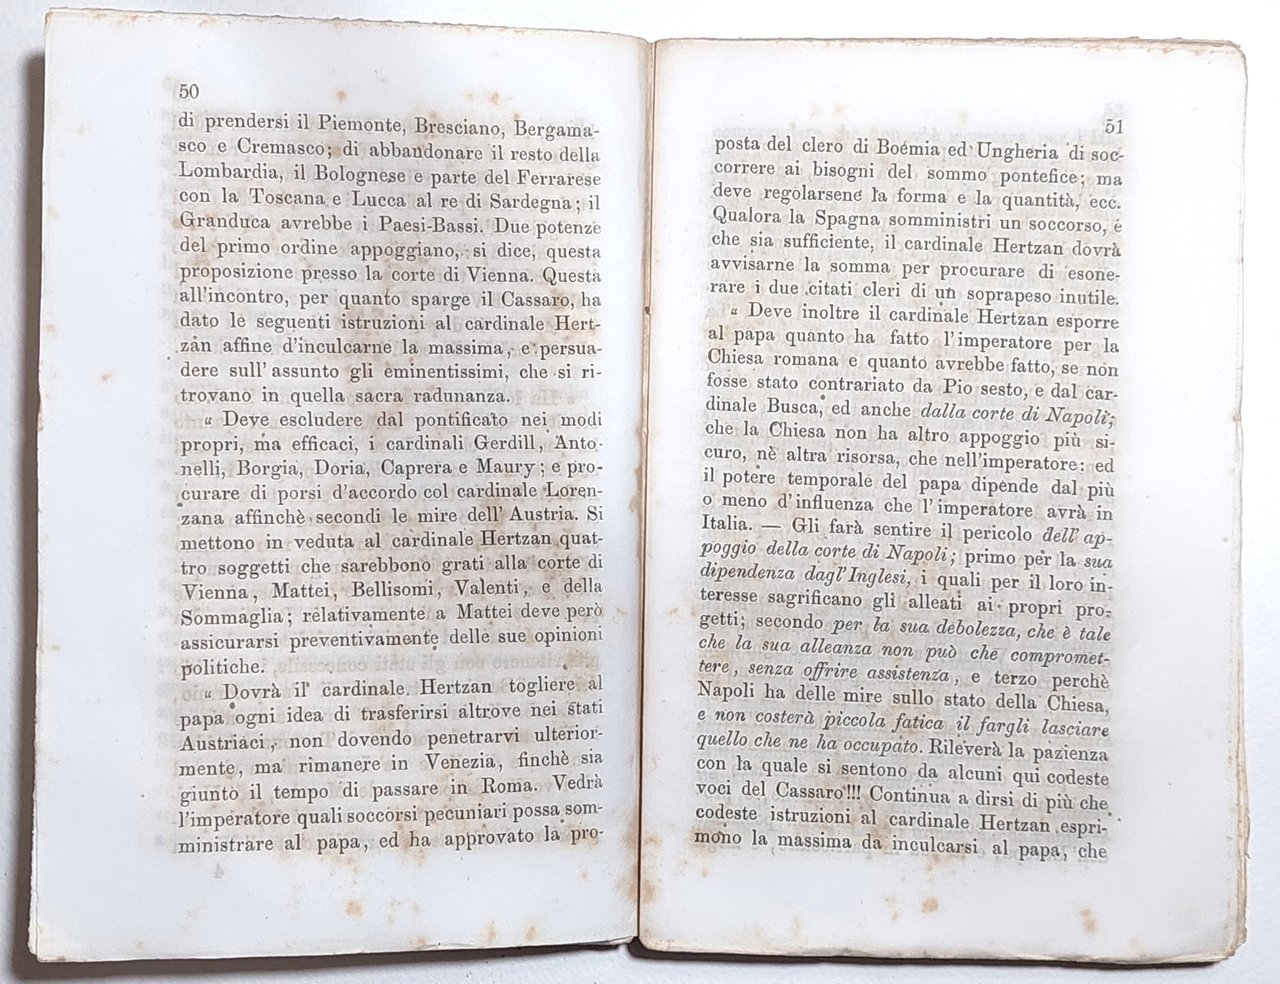 50
di prendersi il Piemonte, Bresciano, Bergama-
sco e Cremasco; di abbandonare il resto della
Lombardia, il Bolognese e parte del Ferrarese
con la Toscana e Lucca al re di Sardegna; il
Granduca avrebbe i Paesi-Bassi. Due potenze
del primo ordine appoggiano, si dice, questa
proposizione presso la corte di Vienna. Questa
all'incontro, per quanto sparge il Cassaro, ha
dato le seguenti istruzioni al cardinale Hert-
zan affine d'inculcarne la massima, e persua-
dere sull'assunto gli eminentissimi, che si ri-
trovano in quella sacra radunanza.
“ Deve escludere dal pontificato nei modi
propri, ma efficaci, i cardinali Gerdill, Anto-
nelli, Borgia, Doria, Caprera e Maury; e pro-
curare di porsi d'accordo col cardinale Loren-
zana affinchè secondi le mire dell'Austria. Si
mettono in veduta al cardinale Hertzan quat-
tro soggetti che sarebbono grati alla corte di
Vienna, Mattei, Bellisomi, Valenti, e della
Sommaglia; relativamente a Mattei deve però
assicurarsi preventivamente delle sue opinioni
politiche.
“ Dovrà il cardinale Hertzan togliere al
papa ogni idea di trasferirsi altrove nei stati
Austriaci, non dovendo penetrarvi ulterior-
mente, ma rimanere in Venezia, finchè sia
giunto il tempo di passare in Roma. Vedrà
l'imperatore quali soccorsi pecuniari possa som-
ministrare al papa, ed ha approvato la pro-
51
posta del clero di Boemia ed Ungheria di soc-
correre ai bisogni del sommo pontefice; ma
deve regolarsene la forma e la quantità, ecc.
Qualora la Spagna somministri un soccorso, e
che sia sufficiente, il cardinale Hertzan dovrà
avvisarne la somma per procurare di esone-
rare i due citati cleri di un soprapeso inutile.
“ Deve inoltre il cardinale Hertzan esporre
al papa quanto ha fatto l'imperatore per la
Chiesa romana e quanto avrebbe fatto, se non
fosse stato contrariato da Pio sesto, e dal car-
dinale Busca, ed anche dalla corte di Napoli;
che la Chiesa non ha altro appoggio più si-
curo, nè altra risorsa, che nell'imperatore: ed
il potere temporale del papa dipende dal più
o meno d'influenza che l'imperatore avrà in
Italia. — Gli farà sentire il pericolo dell'ap-
poggio della corte di Napoli; primo per la sua
dipendenza dagl'Inglesi, i quali per il loro in-
teresse sagrificano gli alleati ai propri pro-
getti; secondo per la sua debolezza, che è tale
che la sua alleanza non può che compromet-
tere, senza offrire assistenza, e terzo perchè
Napoli ha delle mire sullo stato della Chiesa,
e non costerà piccola fatica il fargli lasciare
quello che ne ha occupato. Rileverà la pazienza
con la quale si sentono da alcuni qui codeste
voci del Cassaro!!! Continua a dirsi di più che
codeste istruzioni al cardinale Hertzan espri-
mono la massima da inculcarsi al papa, che